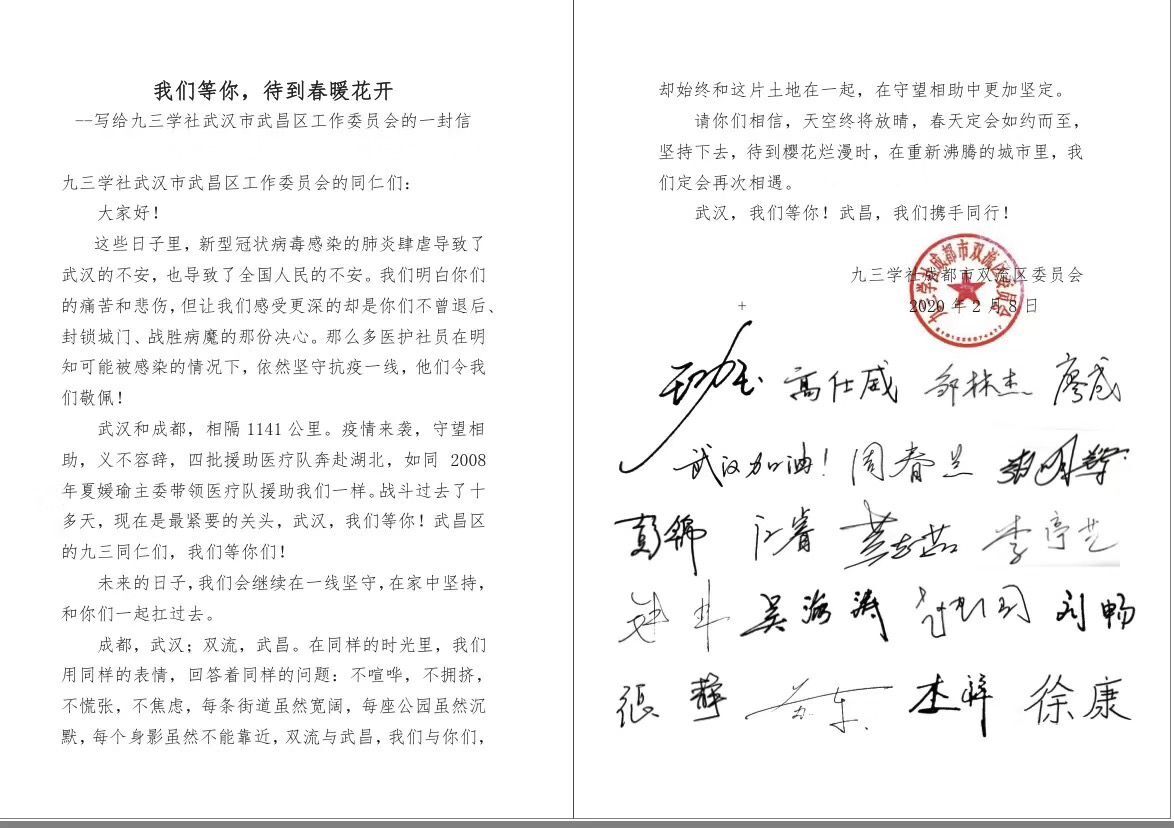 我们等你，待到春暖花开
--写给九三学社武汉市武昌区工作委员会的一封信
九三学社武汉市武昌区工作委员会的同仁们：
大家好！
这些日子里，新型冠状病毒感染的肺炎肆虐导致了
武汉的不安，也导致了全国人民的不安。我们明白你们
的痛苦和悲伤，但让我们感受更深的却是你们不曾退后、
封锁城门、战胜病魔的那份决心。那么多医护社员在明
知可能被感染的情况下，依然坚守抗疫一线，他们令我
们敬佩！
武汉和成都，相隔 1141 公里。疫情来袭，守望相
助，义不容辞，四批援助医疗队奔赴湖北，如同 2008
年夏媛瑜主委带领医疗队援助我们一样。战斗过去了十
多天，现在是最紧要的关头，武汉，我们等你！武昌区
的九三同仁们，我们等你们！
未来的日子，我们会继续在一线坚守，在家中坚持，
和你们一起扛过去。
成都，武汉；双流，武昌。在同样的时光里，我们
用同样的表情，回答着同样的问题：不喧哗，不拥挤，
不慌张，不焦虑，每条街道虽然宽阔，每座公园虽然沉
默，每个身影虽然不能靠近，双流与武昌，我们与你们，
却始终和这片土地在一起，在守望相助中更加坚定。
请你们相信，天空终将放晴，春天定会如约而至，
坚持下去，待到樱花烂漫时，在重新沸腾的城市里，我
们定会再次相遇。
武汉，我们等你！武昌，我们携手同行！
九三学社成都市双流区委员会
2020 年 2 月 8 日
九三学社成都市双流区委员会
高仕威 邹林杰 廖成
武汉加油！ 周春兰
彭锦 江睿 黄志茹 李亭芝
吴海涛 刘畅
张静 李辉 徐康